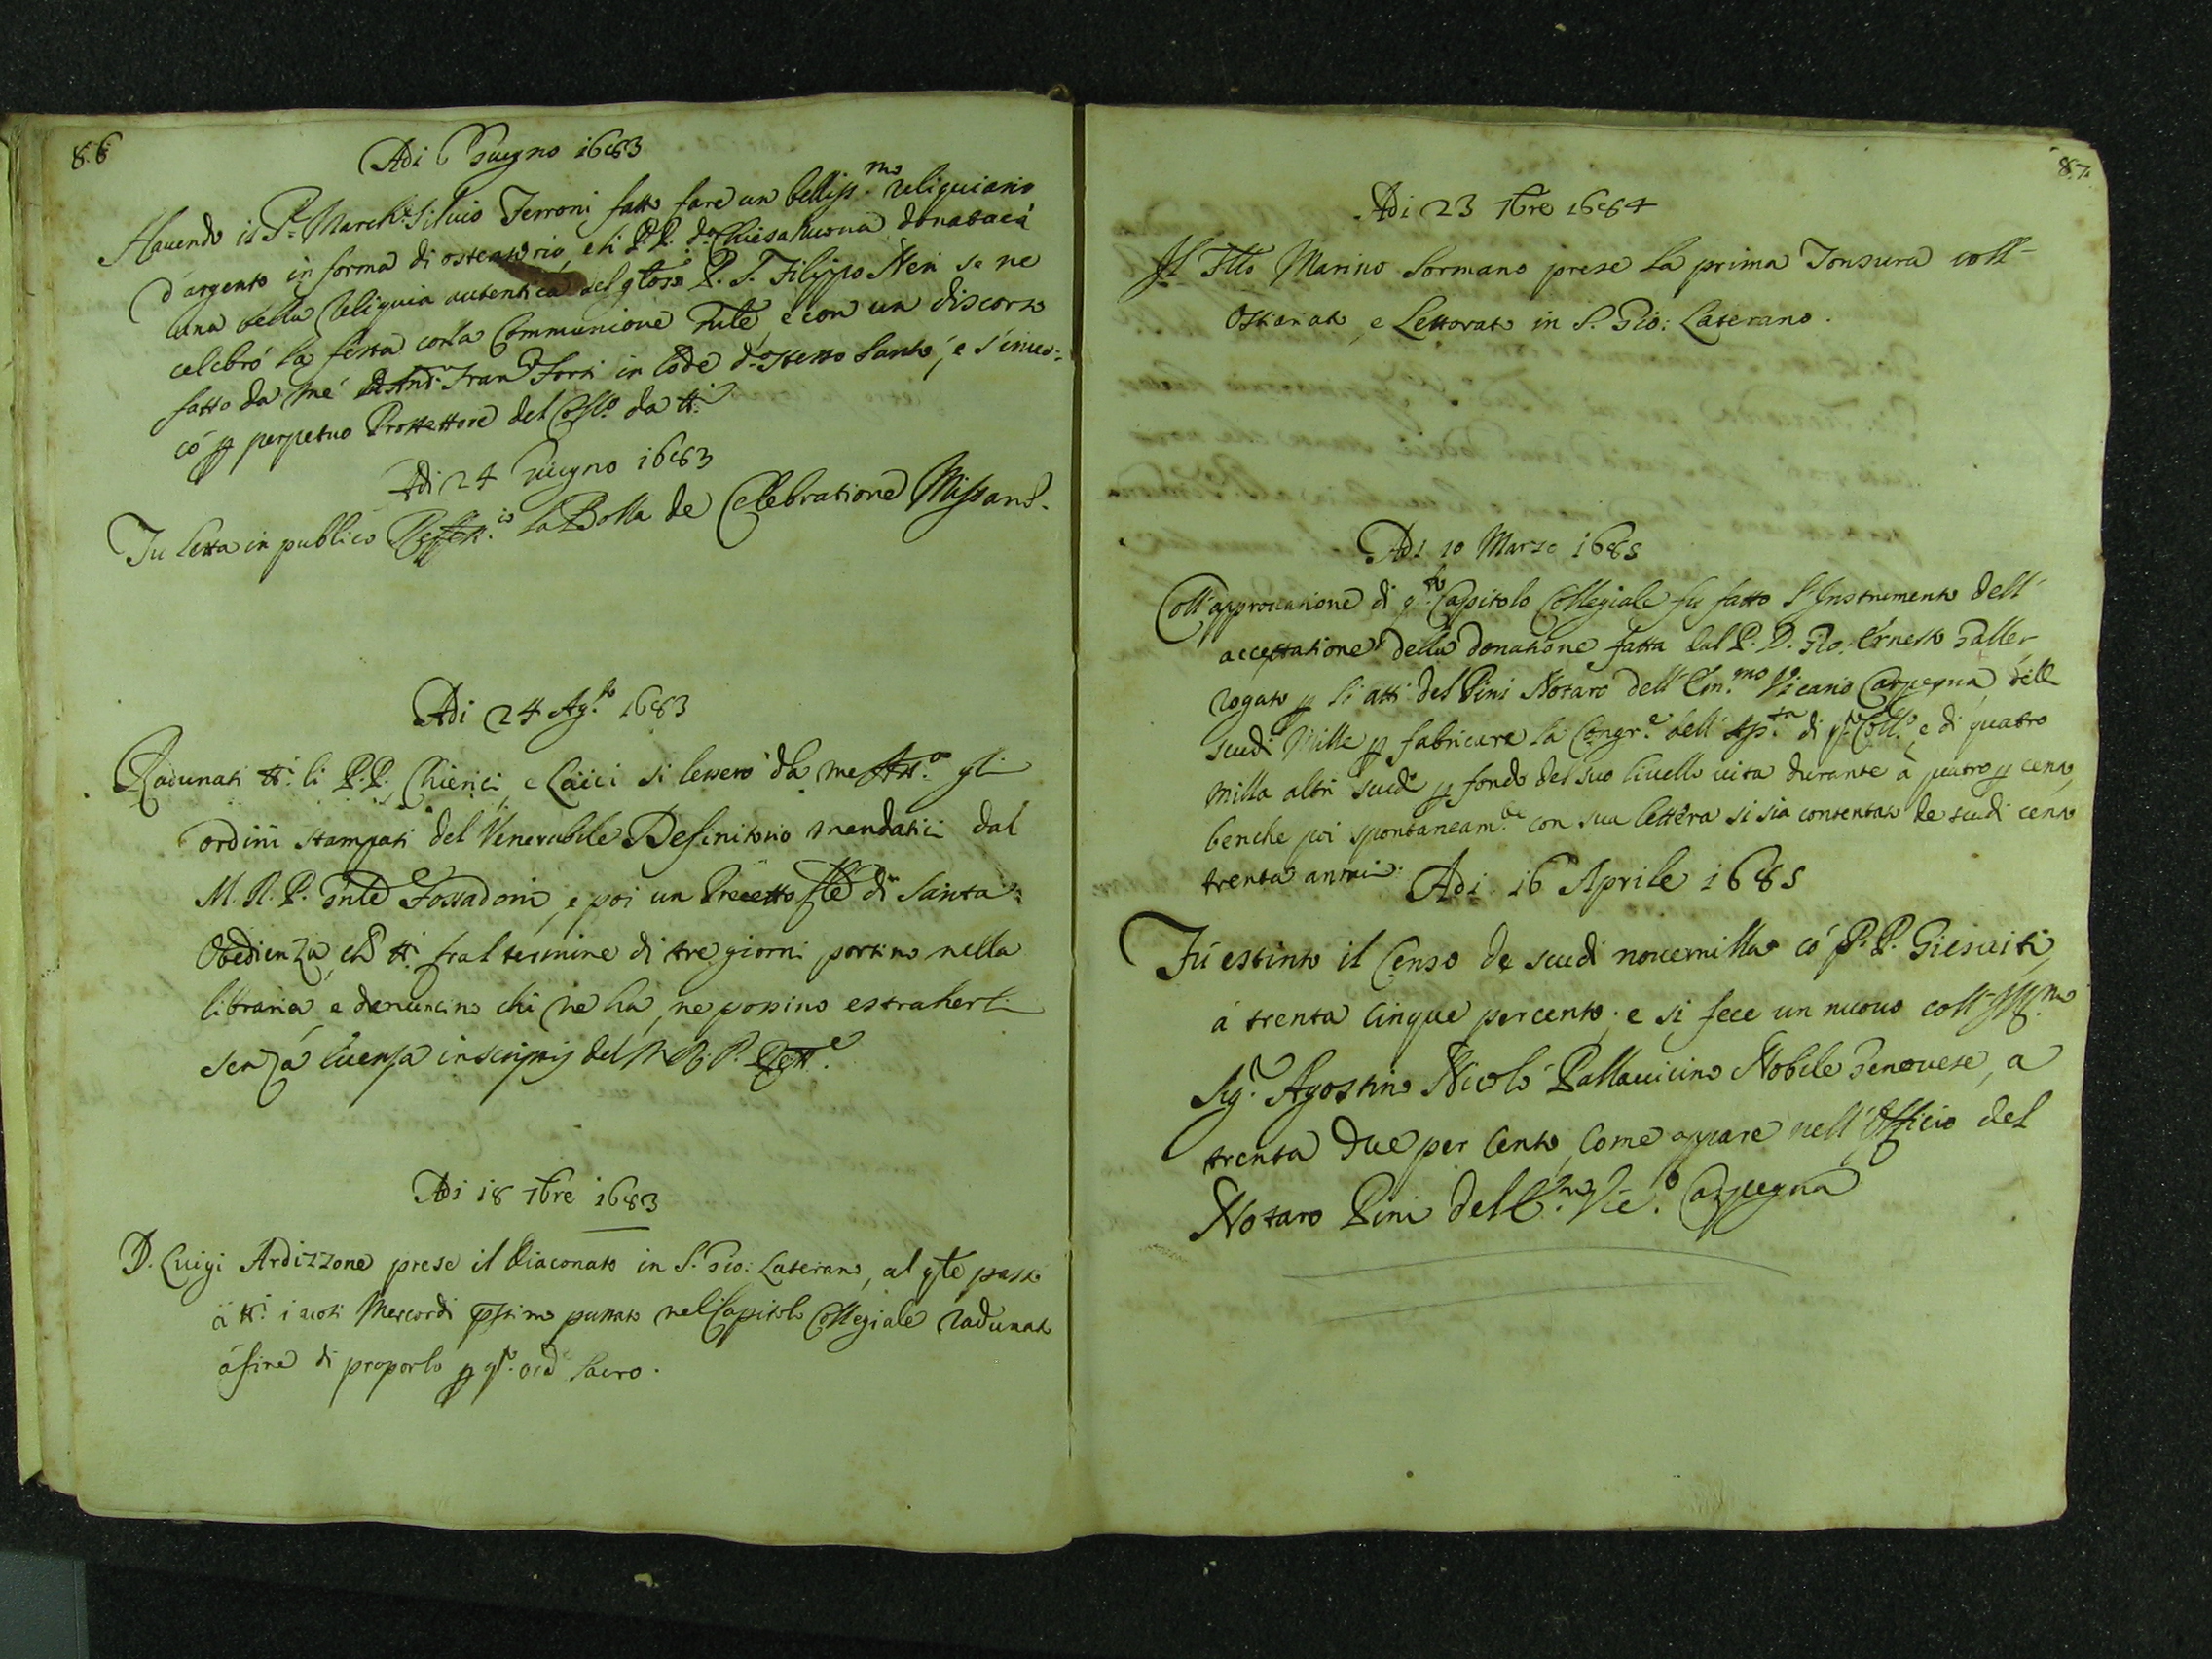 86
Adi Giugno 1683
Havendo il P.e March.e Silvio Ferroni fatto fare un belliss.mo reliquiario
d'argento in forma di ostensorio, e li P.P. d.a Chiesa nuova donataci
una bella reliquia autentica del gloso P. S. Filippo Neri se ne
celebrò la festa con la Communione gnle, e con un discorso
fatto da me Fran.o Forti in lode d.o stesso Santo, e s'invo-
cò p perpetuo Prottettore del Coll.o da tti
Adi 24 Giugno 1683
Fu letta in publico Reffett.io la Bolla de Celebratione Missarũ.
Adi 24 Ag.to 1683
Radunati tti li P.P. Chierici, e Laici si lessero da me Att.o gli
ordini stampati del Venerabile Definitorio mandatici dal
M. R. P. Gnle Fossadoni, e poi un Precetto fle di Santa
Obedienza, chè tti fra'l termine di tre giorni portino nella
libraria, e denuncino chi ne ha, ne possino estraherli
senza licenza in scriptis del M. R. P. Rett.e
Adi 18 7bre 1683
D. Luigi Ardizzone prese il Diaconato in S. Gio: Laterano, al qle passò
à tti i voti Mercordi pssimo passato nel Capitolo Collegiale radunato
à fine di proporlo p qto ord Sacro.
87.
Adi 23 7bre 1684
Il Fllo Marino Sormano prese la prima Tonsura coll-
Ostiariato, e Lettorato in S. Gio: Laterano.
Adi 10 Marzo 1685
Coll'approvatione di qto Capitolo Collegiale fu fatto l'Instrumento dell'
accettatione della donatione fatta dal P. D. Gio. Ernesto Galler
rogato p li atti del Pini Notaro dell'Em.mo Vicario Carpegna, delli
scudi Mille p fabricare la Congr.e dell' di qto Coll.o, e di quatro
milla altri scudi p fondo del suo livello vita durante à quatro p cento,
benche poi spontaneam.te con sua lettera si sia contentato de scudi cento
trenta annui.
Adi 16 Aprile 1685
Fù estinto il Censo de scudi novemilla cò P.P. Giesuiti,
à trenta cinque per cento; e si fece un nuovo coll-Ill.mo
Sig.r Agostino Nicolò Pallavicino Nobile Genovese, a
trenta due per cento, come appare nell'Officio del
Notaro Pini dell'E.mo Vic.o Carpegna